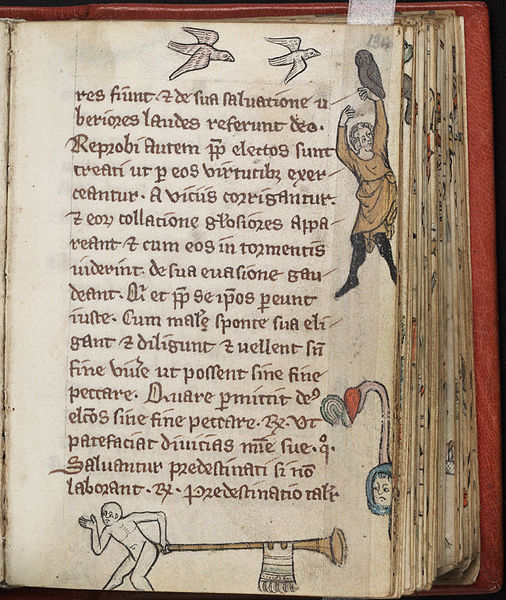 194
res fiunt · ⁊ de sua saluatione u
beriores laudes referunt deo·
Reprobi autem pp̄ electos sunt
creati ut ꝑ eos uirtutibꝫ exer
ceantur· a uiciis corrigantur·
⁊ eoꝝ collatione gl̄osiores appa
reant ⁊ cum eos in tormentis
uiderint· de sua euasione gau
deant· Qr̄ et pp̄ se ip̄os ꝑeunt
iuste· Cum malū sponte sua eli
gant ⁊ diligunt ⁊ uellent sn̄
fine uiuē ut possent sine fine
peccare· Quare ꝑmittit deꝰ
el̄cos sine fine peccare· R̄· Vt
patefaciat diuicias mīe sue· qͦ·
Saluantur predestinati si nō
laborant· R̄· Predestinatio tali